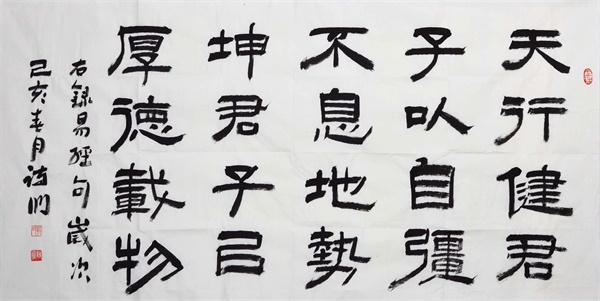 天行健君
子以自彊
不息地勢
坤君子㠯
厚德載物
右錄易經句歲次
己亥春月